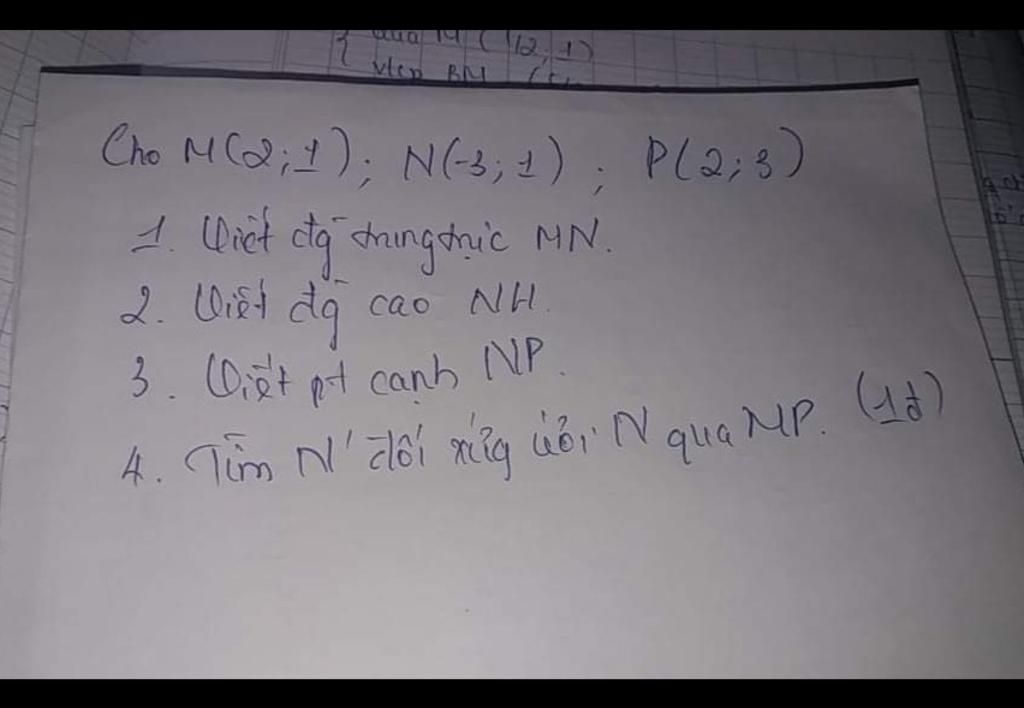 { qua M (12, 1)
vtcp BM
Cho M(2;1); N(-3;1); P(2;3)
1. Viết đg trung trực MN.
2. Viết đg cao NH.
3. Viết pt cạnh NP.
4. Tìm N' đối xứng với N qua MP. (1đ)